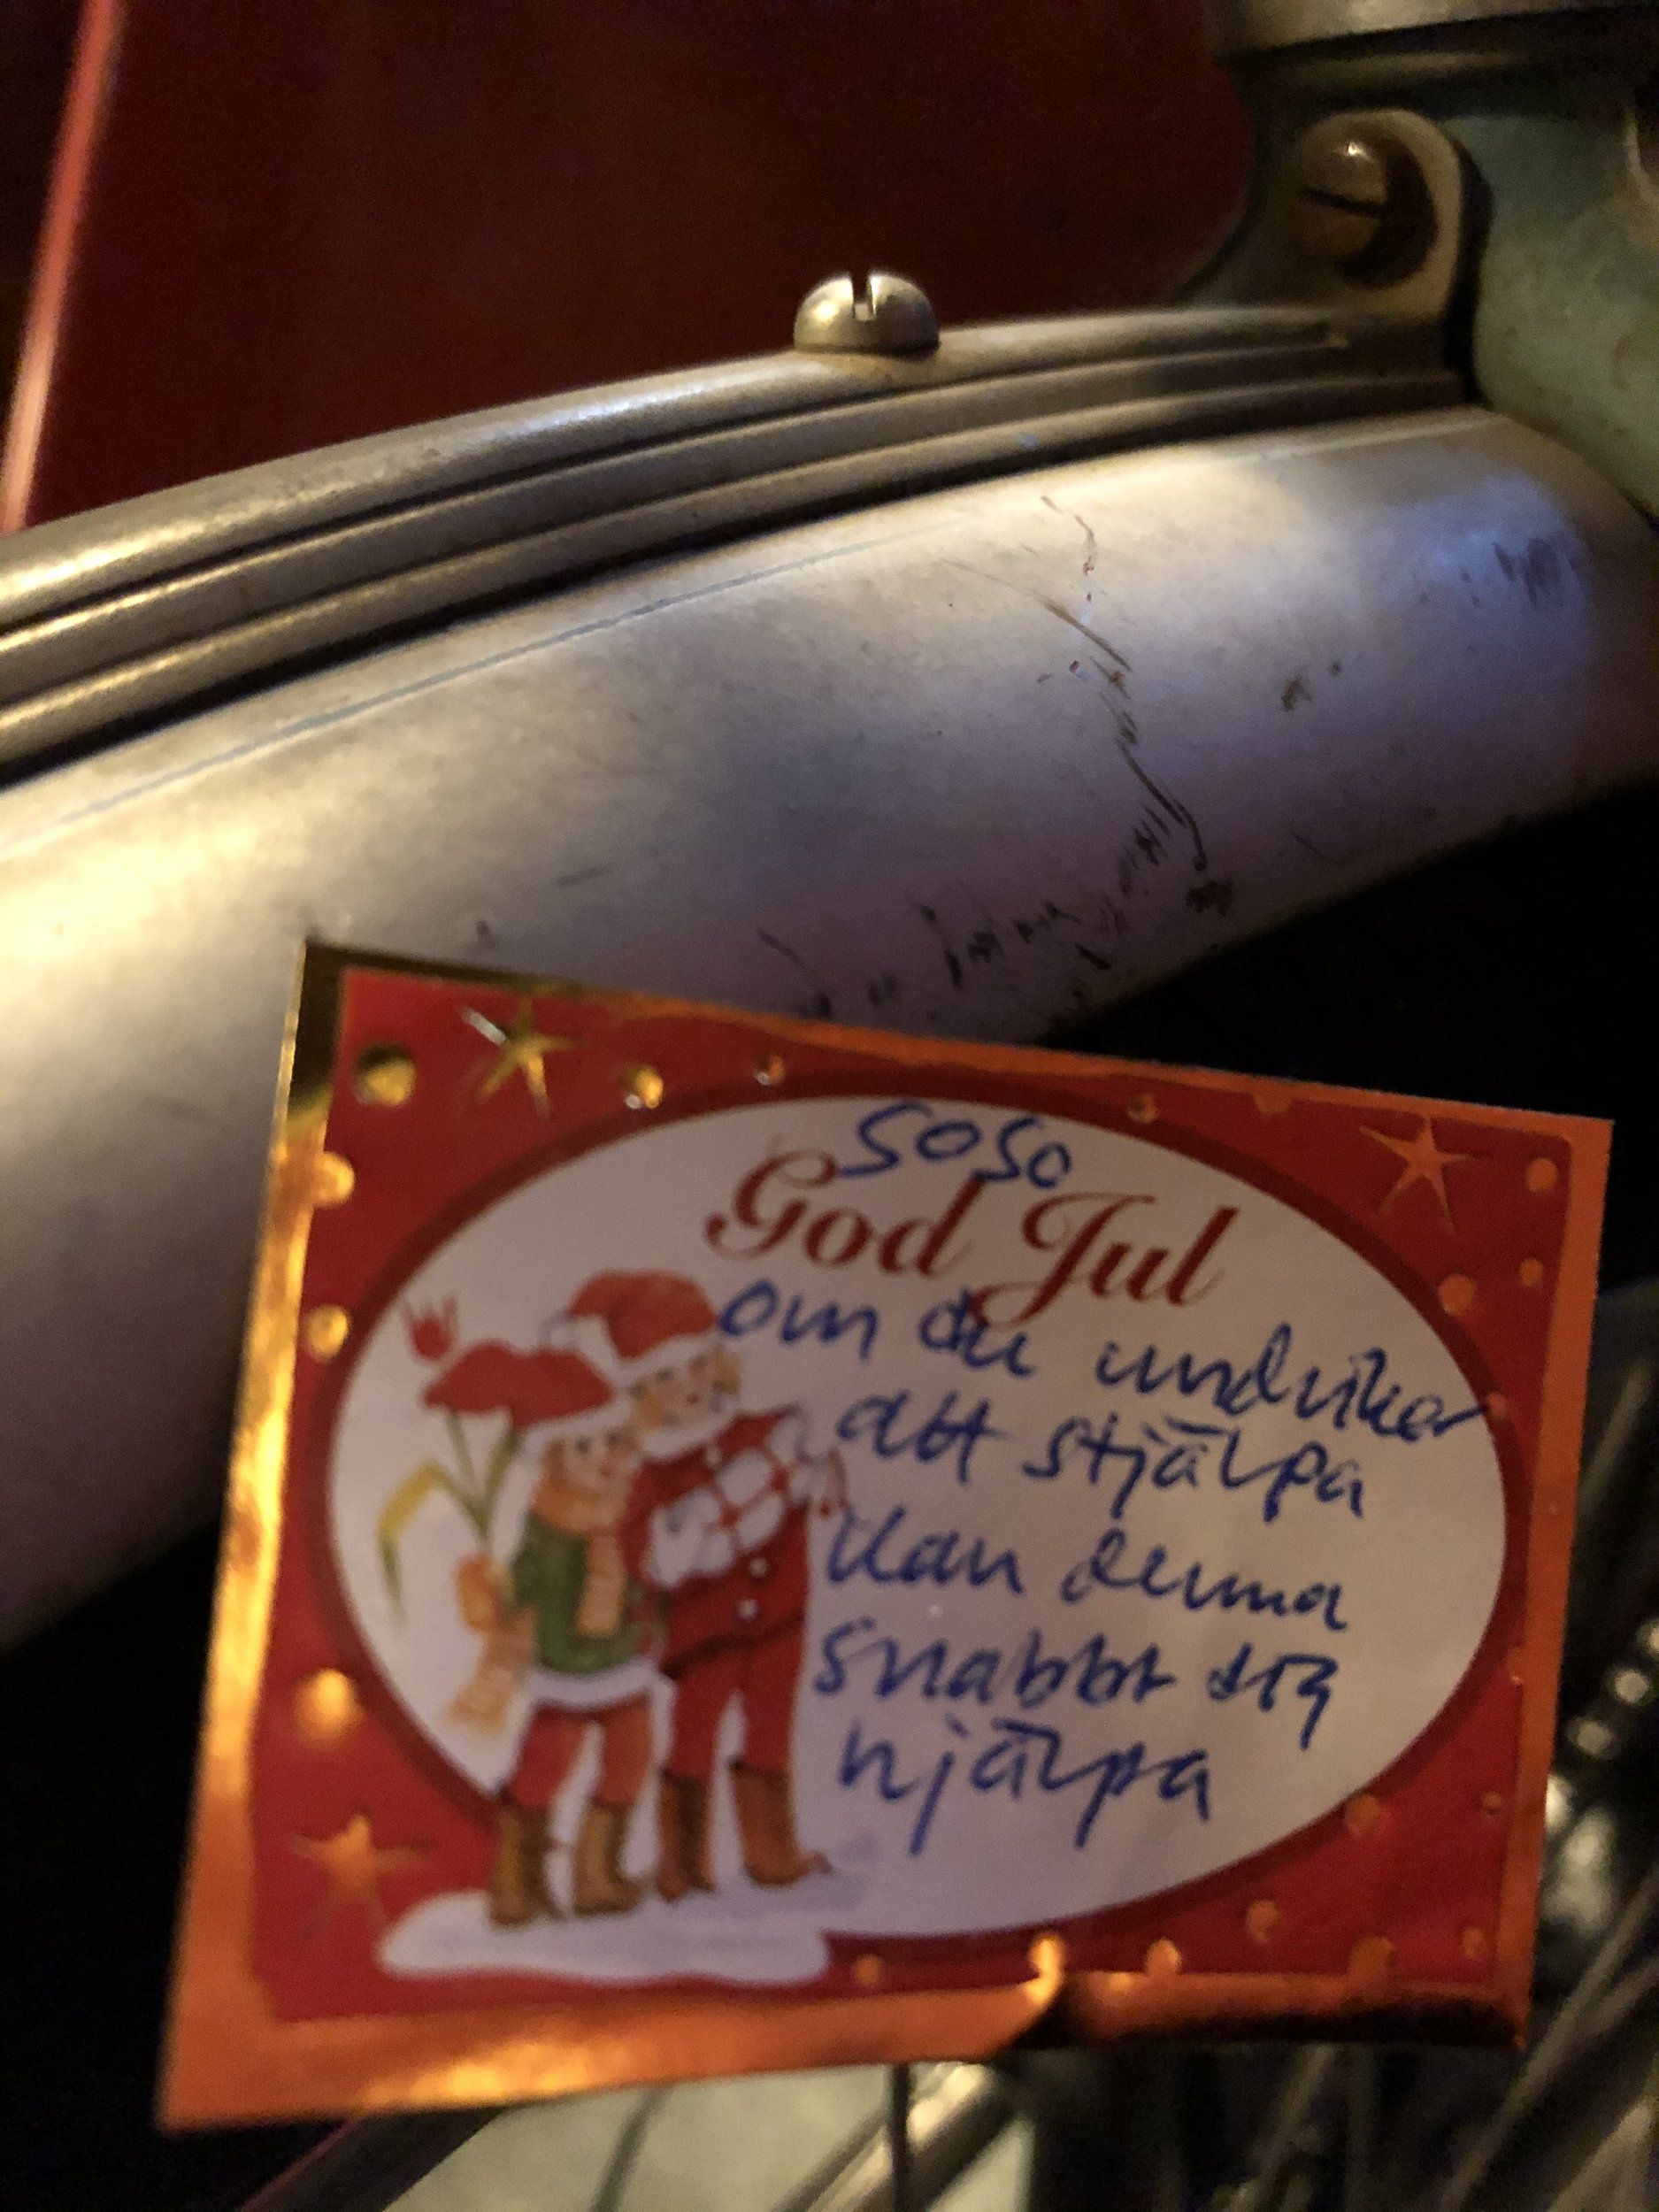 SoSo
God Jul
om du undviker
att stjälpa
kan denna
snabbt dig
hjälpa